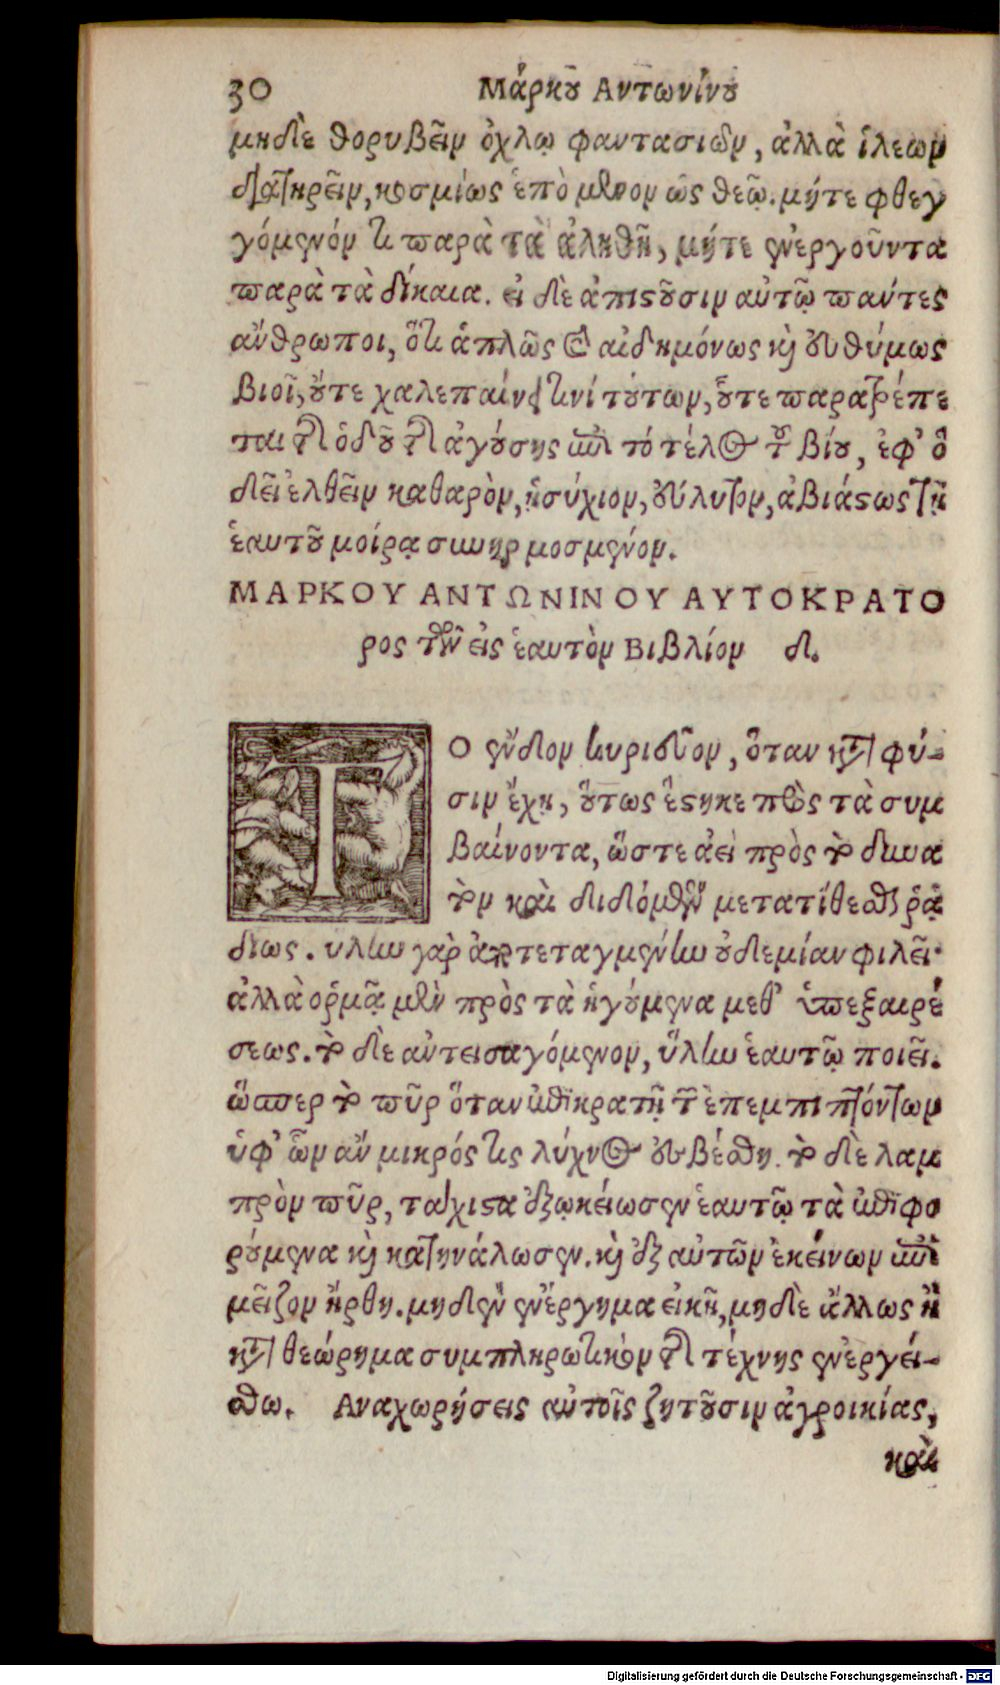 30 Μάρκου Αντωνίνου
μηδὲ θορυβεῖν ὄχλῳ φαντασιῶν, ἀλλὰ ἵλεων
διατηρεῖν, κοσμίως ἑπόμενον ὡς θεῷ. μήτε φθεγ
γόμενόν τι παρὰ τὰ ἀληθῆ, μήτε ἐνεργοῦντα
παρὰ τὰ δίκαια. εἰ δὲ ἀπιστοῦσιν αὐτῷ πάντες
ἄνθρωποι, ὅτι ἁπλῶς καὶ αἰδημόνως καὶ εὐθύμως
βιοῖ, οὔτε χαλεπαίνει τινί τούτων, οὔτε παρατρέπε
ται τῆς ὁδοῦ τῆς ἀγούσης ἐπὶ τό τέλος τοῦ βίου, ἐφ' ὃ
δεῖ ἐλθεῖν καθαρὸν, ἡσύχιον, εὔλυτον, ἀβιάστως τῇ
ἑαυτοῦ μοίρᾳ συνηρμοσμένον.
ΜΑΡΚΟΥ ΑΝΤΩΝΙΝΟΥ ΑΥΤΟΚΡΑΤΟ
ρος τῶν εἰς ἑαυτὸν Βιβλίον δ.
ΤΟ ἔνδον κυριεῦον, ὅταν κατὰ φύ-
σιν ἔχῃ, οὕτως ἕστηκε πρὸς τὰ συμ
βαίνοντα, ὥστε ἀεὶ πρὸς τὸ δυνα
τὸν καὶ διδόμενον μετατίθεσθαι ῥᾳ
δίως. ὕλην γὰρ ἀποτεταγμένην οὐδεμίαν φιλεῖ·
ἀλλὰ ὁρμᾷ μὲν πρὸς τὰ ἡγούμενα μεθ' ὑπεξαιρέ
σεως. τὸ δὲ ἀντεισαγόμενον, ὕλην ἑαυτῷ ποιεῖ.
ὥσπερ τὸ πῦρ ὅταν ἐπικρατῇ τῶν ἐπεμπιπτόντων
ὑφ' ὧν ἂν μικρός τις λύχνος ἐσβέσθη. τὸ δὲ λαμ
πρὸν πῦρ, τάχιστα ἐξῳκείωσεν ἑαυτῷ τὰ ἐπιφο
ρούμενα καὶ κατηνάλωσεν. καὶ ἐξ αὐτῶν ἐκείνων ἐπὶ
μεῖζον ἤρθη. μηδὲν ἐνέργημα εἰκῆ, μηδὲ ἄλλως ἢ
κατὰ θεώρημα συμπληρωτικὸν τῆς τέχνης ἐνεργεί-
σθω. Αναχωρήσεις αὑτοῖς ζητοῦσιν ἀγροικίας,
καὶ
Digitalisierung gefördert durch die Deutsche Forschungsgemeinschaft - DFG